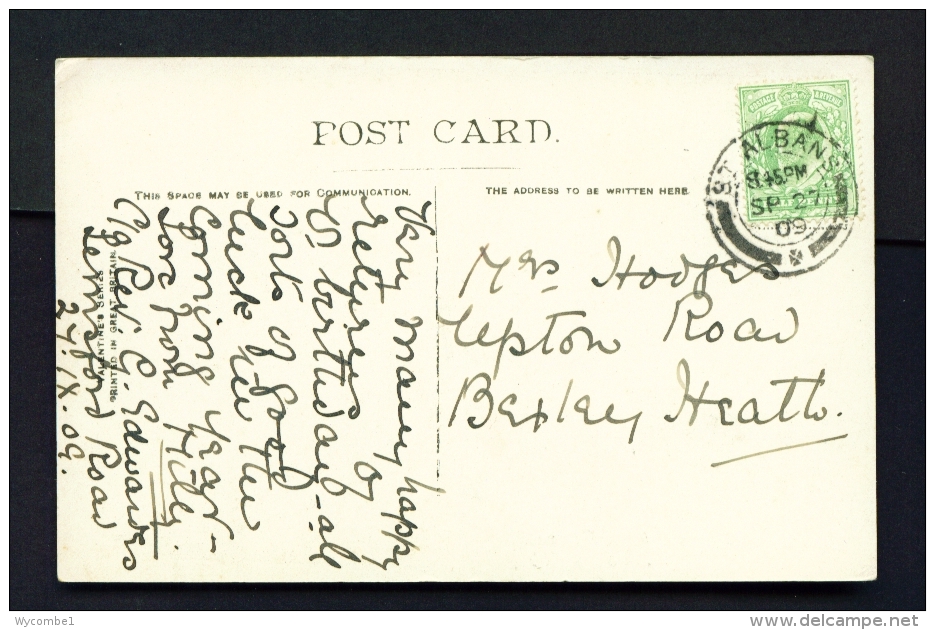 POST CARD.
THIS SPACE MAY BE USED FOR COMMUNICATION.
THE ADDRESS TO BE WRITTEN HERE
POSTAGE
ST ALBANS
8.45PM
SP 27
09
Mrs Hodges
Upton Road
Bexley Heath.
Very many happy
returns of
birthday - all
sorts of good
luck for the
coming year -
Love from Hilly.
c/o Rev. G. Edwards
Lemsford Road
27.IX.09.
VALENTINE'S SERIES
PRINTED IN GREAT BRITAIN
Wycombe1
www.delcampe.net